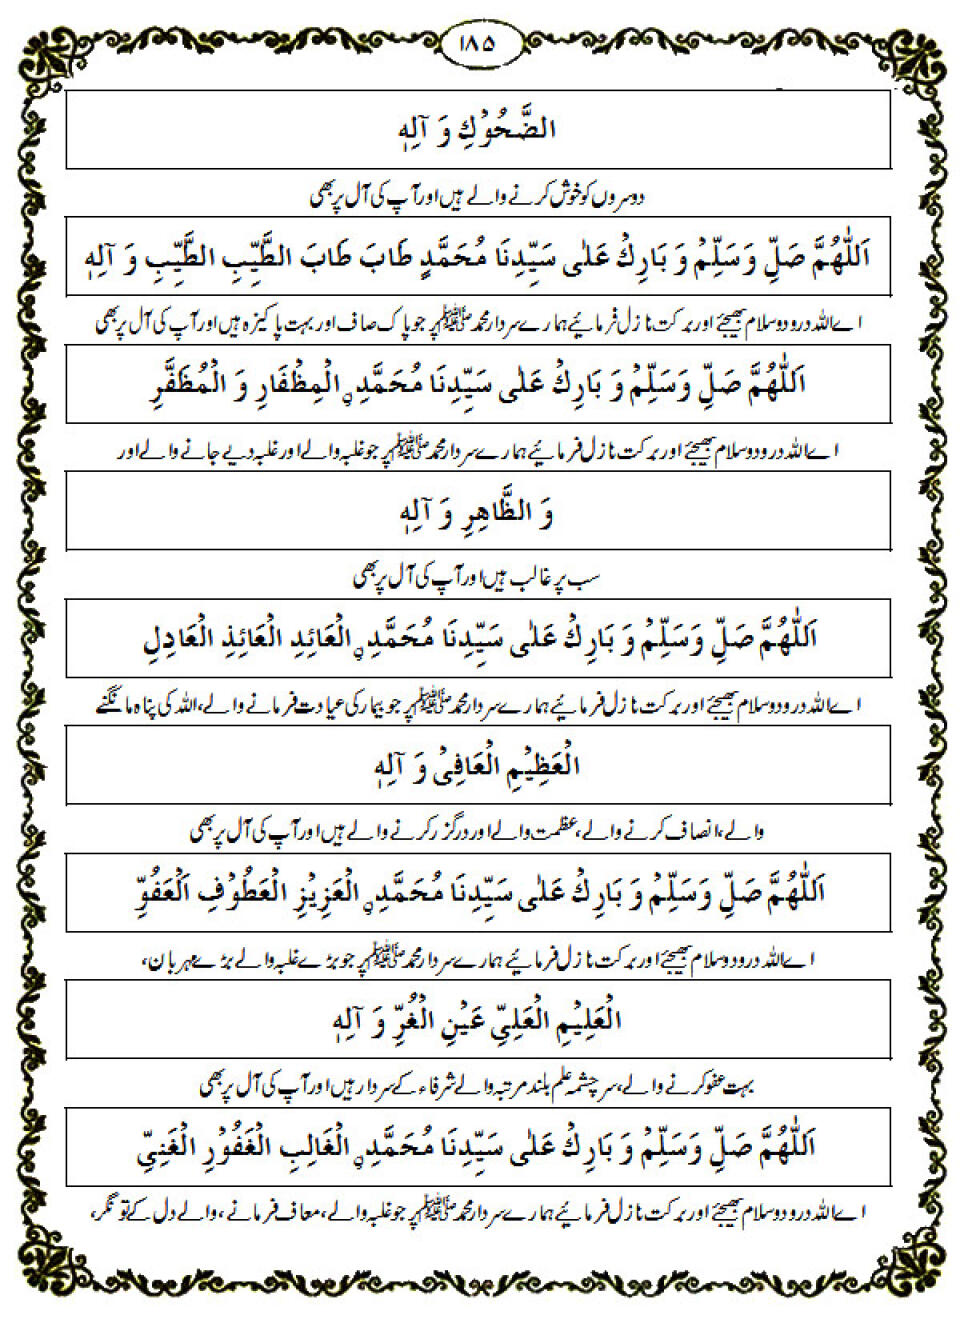 ۱۸۵
الضَّحُوْكِ وَ آلِهٖ
دوسروں کو خوش کرنے والے ہیں اور آپ کی آل پر بھی
اَللّٰهُمَّ صَلِّ وَسَلِّمْ وَ بَارِكْ عَلٰى سَيِّدِنَا مُحَمَّدٍ طَابَ طَابَ الطَّيِّبِ الطَّيِّبِ وَ آلِهٖ
اے اللہ درود و سلام بھیجئے اور برکت نازل فرمائیے ہمارے سردار محمد ﷺ پر جو پاک صاف اور بہت پاکیزہ ہیں اور آپ کی آل پر بھی
اَللّٰهُمَّ صَلِّ وَسَلِّمْ وَ بَارِكْ عَلٰى سَيِّدِنَا مُحَمَّدِ ۨ الْمِظْفَارِ وَ الْمُظَفَّرِ
اے اللہ درود و سلام بھیجئے اور برکت نازل فرمائیے ہمارے سردار محمد ﷺ پر جو غلبہ والے اور غلبہ دیے جانے والے اور
وَ الظَّاهِرِ وَ آلِهٖ
سب پر غالب ہیں اور آپ کی آل پر بھی
اَللّٰهُمَّ صَلِّ وَسَلِّمْ وَ بَارِكْ عَلٰى سَيِّدِنَا مُحَمَّدِ ۨ الْعَائِدِ الْعَائِذِ الْعَادِلِ
اے اللہ درود و سلام بھیجئے اور برکت نازل فرمائیے ہمارے سردار محمد ﷺ پر جو بیمار کی عیادت فرمانے والے، اللہ کی پناہ مانگنے
الْعَظِيْمِ الْعَافِىْ وَ آلِهٖ
والے، انصاف کرنے والے، عظمت والے اور درگزر کرنے والے ہیں اور آپ کی آل پر بھی
اَللّٰهُمَّ صَلِّ وَسَلِّمْ وَ بَارِكْ عَلٰى سَيِّدِنَا مُحَمَّدِ ۨ الْعَزِيْزِ الْعَطُوْفِ اَلْعَفُوِّ
اے اللہ درود و سلام بھیجئے اور برکت نازل فرمائیے ہمارے سردار محمد ﷺ پر جو بڑے غلبہ والے بڑے مہربان،
الْعَلِيْمِ الْعَلِىِّ عَيْنِ الْغُرِّ وَ آلِهٖ
بہت عفو کرنے والے، سرچشمہ علم بلند مرتبہ والے شرفاء کے سردار ہیں اور آپ کی آل پر بھی
اَللّٰهُمَّ صَلِّ وَسَلِّمْ وَ بَارِكْ عَلٰى سَيِّدِنَا مُحَمَّدِ ۨ الْغَالِبِ الْغَفُوْرِ الْغَنِىِّ
اے اللہ درود و سلام بھیجئے اور برکت نازل فرمائیے ہمارے سردار محمد ﷺ پر جو غلبہ والے، معاف فرمانے، والے دل کے تونگر،